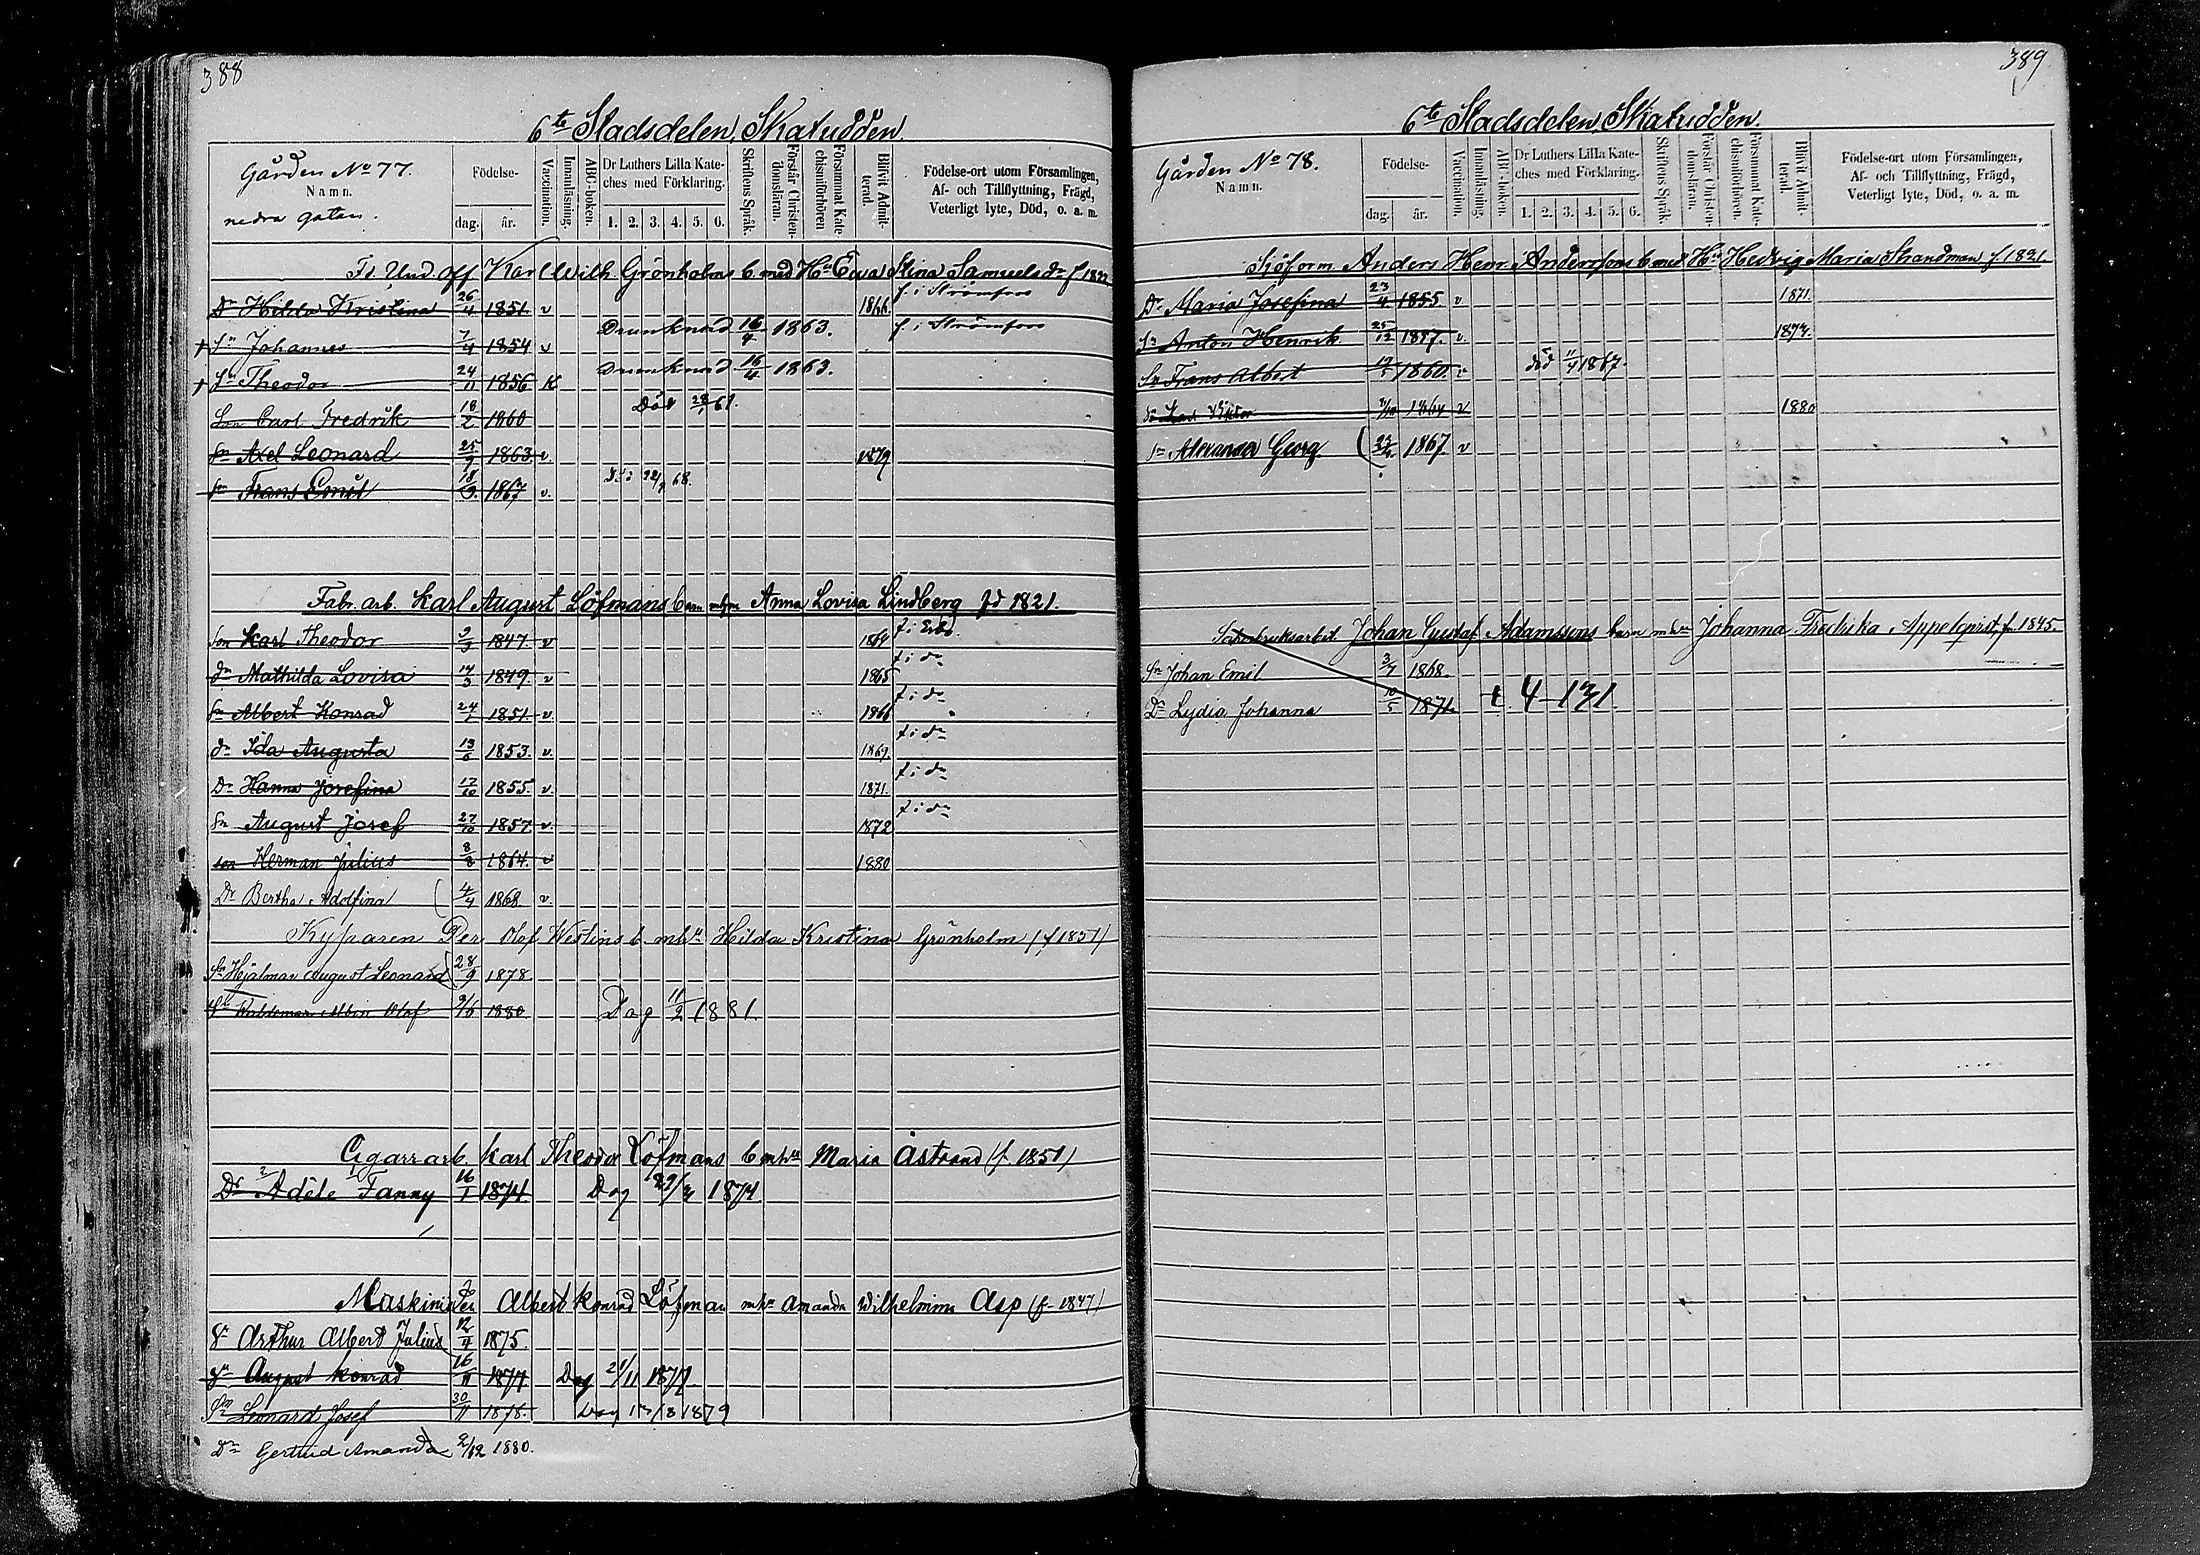 388
6te Stadsdelen, Skatudden
Gården No 77.
Namn.
nedra gatan.
Födelse-
dag. år.
Vaccination.
Innanläsning.
ABC-boken.
Dr Luthers Lilla Kate-
ches med Förklaring.
1. 2. 3. 4. 5. 6.
Skriftens Språk.
Förstår Christen-
domsläran.
Försummat Kate-
chismiförhören
Blifvit Admit-
terad.
Födelse-ort utom Församlingen,
Af- och Tillflyttning, Frägd,
Veterligt lyte, Död, o. a. m.
Fd. Und. off Karl Wilh Grönholms b. med Hu Ewa Stina Samuelsdr f 1822
Dr Hilda Kristina 26/4 1851 v 1866. f. i Strömfors
+ Sn Johannes 7/4 1854 v Drunknad 16/4 1863. f. i Strömfors
+ Sn Theodor 24/11 1856 K Drunknad 16/4 1863.
Son Carl Fredrik 18/2 1860 Död 28/1 61.
Sn Axel Leonard 25/9 1863 v. 1879
Sn Frans Emil 18/9 1867 v. 68.
Fabr. arb. Karl August Löfmans barn mhu Anna Lovisa Lindberg fd 1821.
Son Karl Theodor 1847. v 1864
dr Mathilda Lovisa 1849. v 1865 f. i do
Sn Albert Konrad 24/1 1851. v 1866 f. i do
dr Ida Augusta 13/6 1853. v. 1869. f. i do
Dr Hanna Josefina 12/10 1855. v. 1871. f. i do
Sn August Josef 27/10 1857. v. 1872 f. i do
son Herman Julius 8/8 1864. v 1880
Dr Bertha Adolfina ( 4/4 1868 v.
Kyparen Per Olof Westins b. mhu Hilda Kristina Grönholm (f 1851)
Sn Hjalmar August Leonard 28/9 1878.
Sn Waldemar Albin Olof 1880. Dog 11/2 1881.
Cigarrarb. Karl Theodor Löfmans b mhu Maria Åstrand (f. 1851)
2 1
Dr Adéle Fanny 16/1 1874. Dog 1874
Albert Konrad Löfman mhu Amanda Wilhelmina Asp (f. 1847)
Sn Arthur Albert Julius 12/4 1875.
Sn August Konrad 16/11 1877 Dog 21/11 1877.
Sn Leonard Josef 30/11 1878. Dog 1879
Dr Gertrud Amanda 2/12 1880.
389
6te Stadsdelen, Skatudden.
Gården No 78.
Namn.
Födelse-
dag. år.
Vaccination.
Innanläsning.
ABC-boken.
Dr Luthers Lilla Kate-
ches med Förklaring.
1. 2. 3. 4. 5. 6.
Skriftens Språk.
Förstår Christen-
domsläran.
Försummat Kate-
chismiförhören.
Blifvit Admit-
terad.
Födelse-ort utom Församlingen,
Af- och Tillflyttning, Frägd,
Veterligt lyte, Död, o. a. m.
Sjöform Anders Henr. Anderssons b med Hu Hedvig Maria Strandman f 1821.
Dr Maria Josefina 23/4 1855 v 1871.
Sn Anton Henrik 25/12 1857. v.
Sn Frans Albert 1860. v död 11/4 1867.
Viktor v 1880
Sn Alexander Georg ( 1867 v
Johan Gustaf Adamssons barn mhu Johanna Fredrika Appelqvist, f. 1845.
Sn Johan Emil 3/7 1868.
Dr Lydia Johanna 10/5 1871. + 4 131